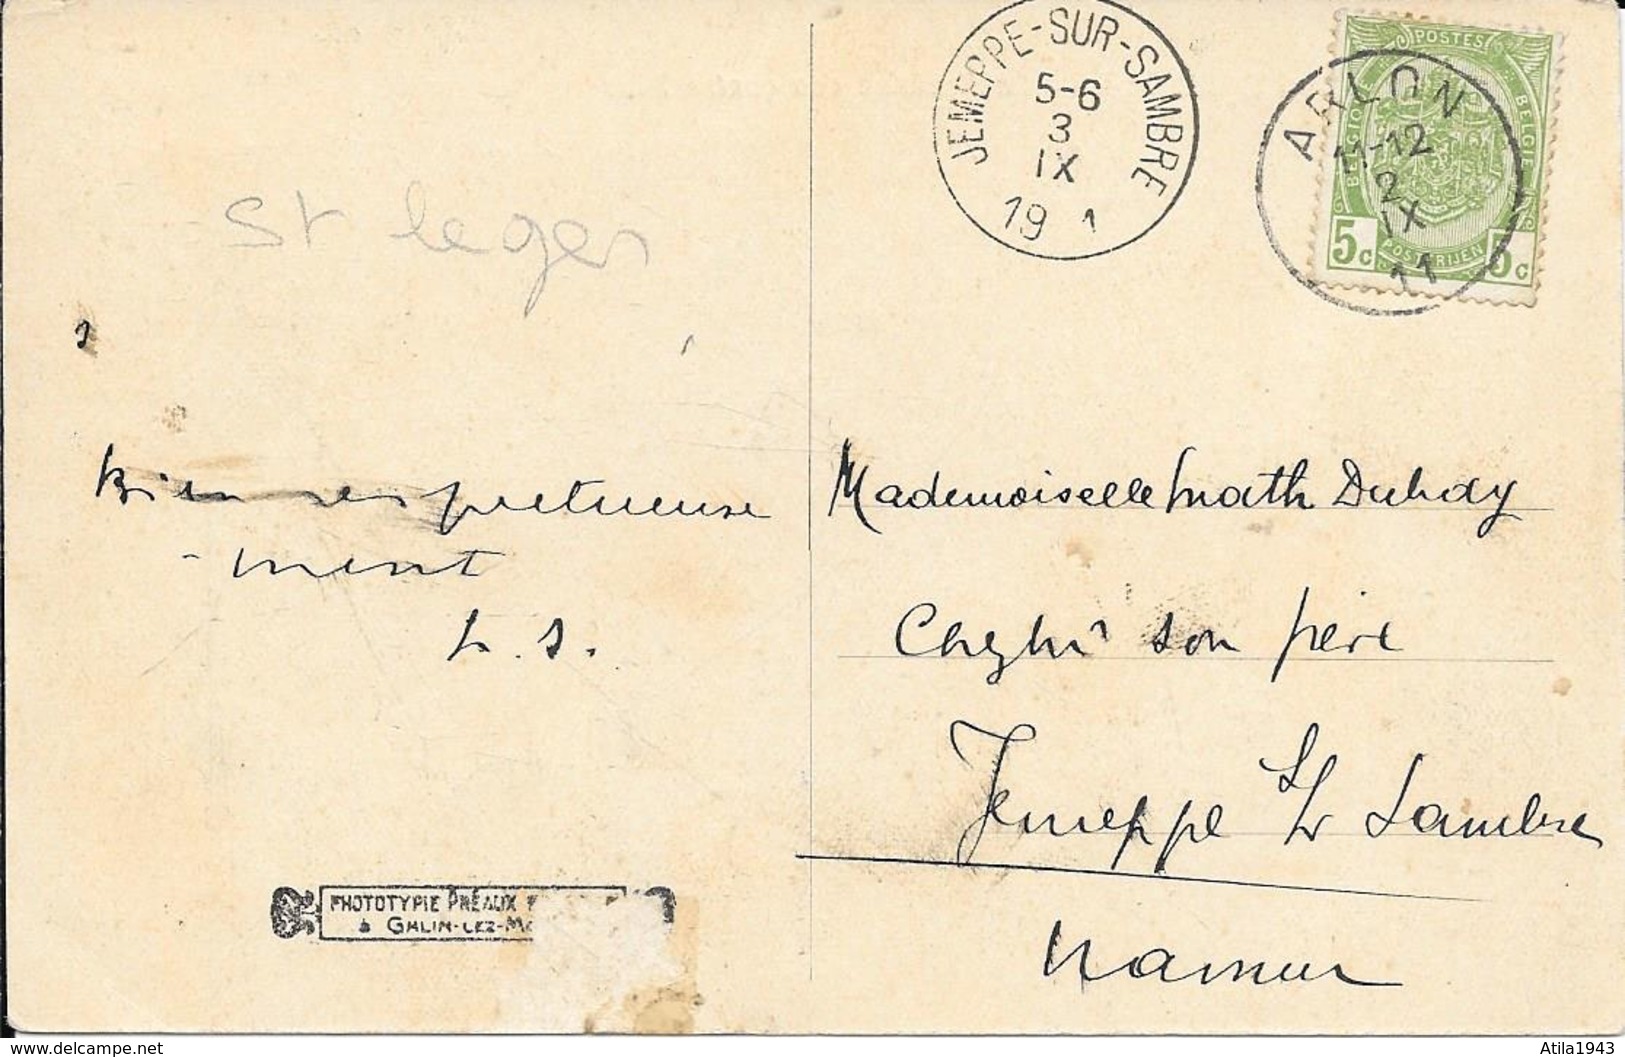 JEMEPPE-SUR-SAMBRE
5-6
3
IX
19 1
ARLON
11-12
2
IX
11
POSTES
BELGIQUE BELGIE
5c POSTERIJEN 5c
St leger
Bien respectueuse
-ment
L. S.
Mademoiselle Math Duhay
Chez Mr son père
Jemeppe S/r Sambre
Namur
PHOTOTYPIE PRÉAUX
à GHLIN-LEZ-M
delcampe.net
Atila1943